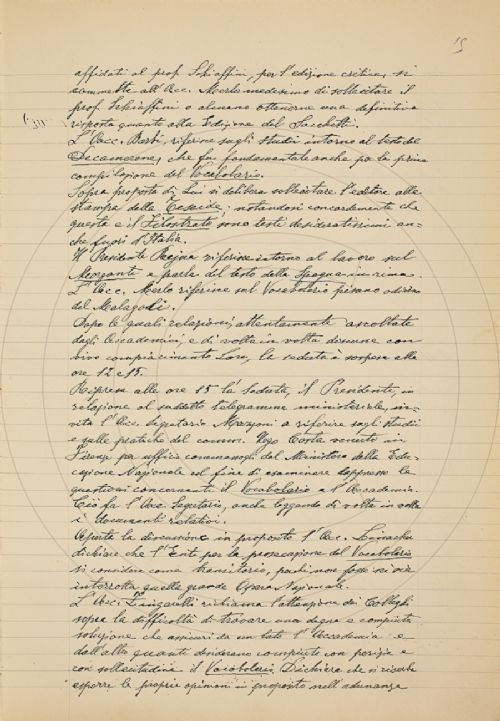 15
affidati al prof. Schiaffini, per l'edizione critica, si
commette all'Acc. Merlo medesimo di sollecitare il
prof. Schiaffini o almeno ottenerne una definitiva
risposta quanto alla Edizione del Sacchetti.
L'Acc. Barbi, riferisce sugli studi intorno al testo del
Decamerone, che fu fondamentale anche per la prima
compilazione del Vocabolario.
Sopra proposta di Lui si delibera sollecitare l'editore alla
stampa della Teseide; notandosi concordemente che
questa e il Filostrato sono testi desideratissimi an-
che fuori d'Italia.
Il Presidente Rajna riferisce intorno al lavoro sul
Morganti e parla del testo della Spagna in rima.
L'Acc. Merlo riferisce sul Vocabolario pisano odierno
del Malagoli.
Dopo le quali relazioni, attentamente ascoltate
dagli Accademici, e di volta in volta discusse con
vivo compiacimento loro, la seduta è sospesa alle
ore 12 e 15.
Ripresa alle ore 15 la Seduta, il Presidente, in
relazione al suddetto telegramma ministeriale, in-
vita l'Acc. Segretario Morpurgo a riferire sugli studi
e sulle pratiche del comm. Ugo Costa venuto in
Firenze per ufficio commessogli dal Ministero della Edu-
cazione Nazionale al fine di esaminare dappresso le
questioni concernenti il Vocabolario e l'Accademia.
Ciò fa l'Acc. Segretario, anche leggendo di volta in volta
i documenti relativi.
Aperta la discussione in proposito l'Acc.
dichiara che l'Ente per la prosecuzione del Vocabolario
si consideri come transitorio, perchè non fosse
interrotta quella grande Opera Nazionale.
L'Acc. Zingarelli richiama l'attenzione dei Colleghi
sopra la difficoltà di trovare una degna e compiuta
soluzione che assicuri da un lato l'Accademia e
dall'altro quanti desiderano compiuto con perizia e
con sollecitudine il Vocabolario. Dichiara che si riserba
esporre le proprie opinioni in proposito nell'adunanza